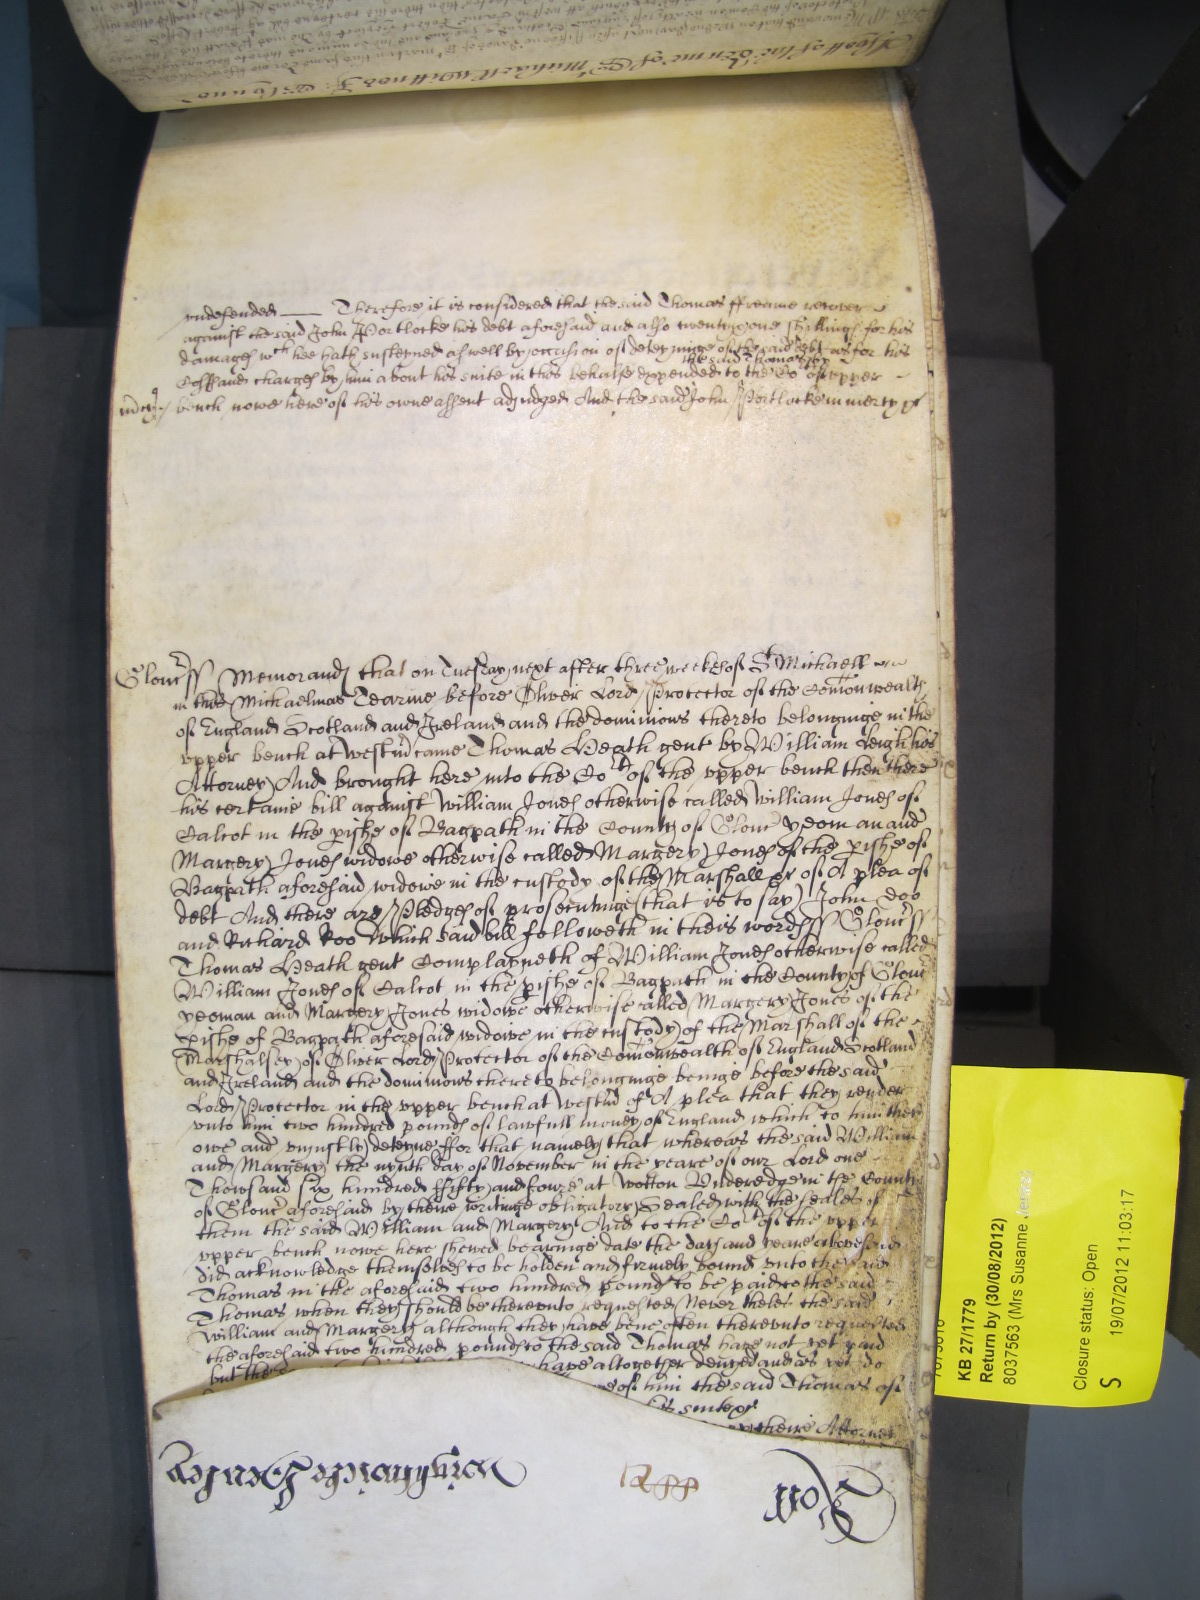 undefended Therefore it is considered that the said Thomas ffreame recover
against the said John Portlocke his debt aforesaid and also twenty one shillings for his
damages wch hee hath susteyned aswell by occasion of deteyninge of the said debt as for his
the said Thomas
Costs and charges by him about his suite in this behalfe expended to the Cort of upper
bench nowe here of his owne assent adjudged And the said John Portlocke in mercy
Glouc ss Memorand that on Tuesday next after three weekes of St Michaell
in this Michaelmas Tearme before Oliver Lord Protector of the Comonwealth
of England Scotland and Ireland and the dominions thereto belonginge in the
upper bench at Westm came Thomas Heath gent by William Leigh his
Attorney And brought here into the Cort of the upper bench then there
his certaine bill against William Jones otherwise called William Jones of
Calcot in the pishe of Bagpath in the County of Glouc yeoman and
Margery Jones widowe otherwise called Margery Jones of the pishe of
Bagpath aforesaid widowe in the custody of the Marshall &c of A plea of
debt And there are Pledges of prosecutinge that is to say John Doo
and Richard Roo Which said bill followeth in theis words ss Glouc ss
Thomas Heath gent Complayneth of William Jones otherwise called
William Jones of Calcot in the pishe of Bagpath in the County of Glouc
yeoman and Margery Jones widowe otherwise called Margery Jones of the
pishe of Bagpath aforesaid widowe in the custody of the Marshall of the
Marshalsey of Oliver Lord Protector of the Comonwealth of England Scotland
and Ireland and the dominions thereto belonginge beinge before the said
Lord Protector in the upper bench at Westm of A plea that they render
unto him two hundred pounds of lawfull money of England which to him they
owe and unjustly deteyne ffor that namely that whereas the said William
and Margery the nynth day of November in the yeare of our Lord one
Thowsand six hundred ffifty and fowre at Wotton Underedge in the County
of Glouc aforesaid by theire writinge obligatory Sealed with the seales of
them the said William and Margery And to the Cort of the upper
upper bench nowe here shewed bearinge date the day and yeare abovesaid
did acknowledge themselves to be holden and firmely bound unto the said
Thomas in the aforesaid two hundred pounds to be paid to the said
Thomas when they should be thereunto requested Never theles the said
William and Margery although they have bene often thereunto requested
the aforesaid two hundred pounds to the said Thomas have not yet paid
but have altogether denyed and as yet do
of him the said Thomas of
his suite &c
theire Attorney
Roll
1288
KB 27/1779
Return by (30/08/2012)
8037563 (Mrs Susanne
Closure status: Open
S 19/07/2012 11:03:17